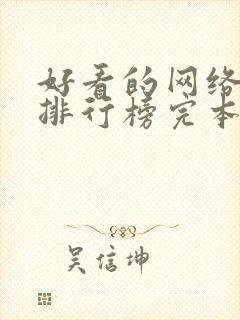 好看的网络
排行榜完本
吴信坤